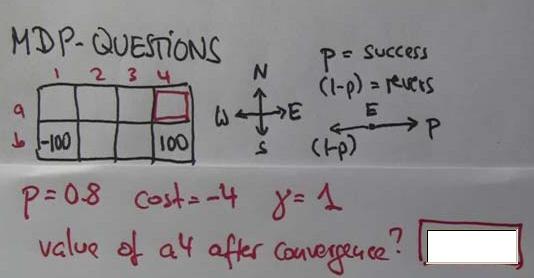 MDP-QUESTIONS
1 2 3 4
a
b -100 100
N
W E
S
p = success
(1-p) = revers
E
(1-p) P
p=0.8 cost=-4 γ=1
value of a4 after convergence?